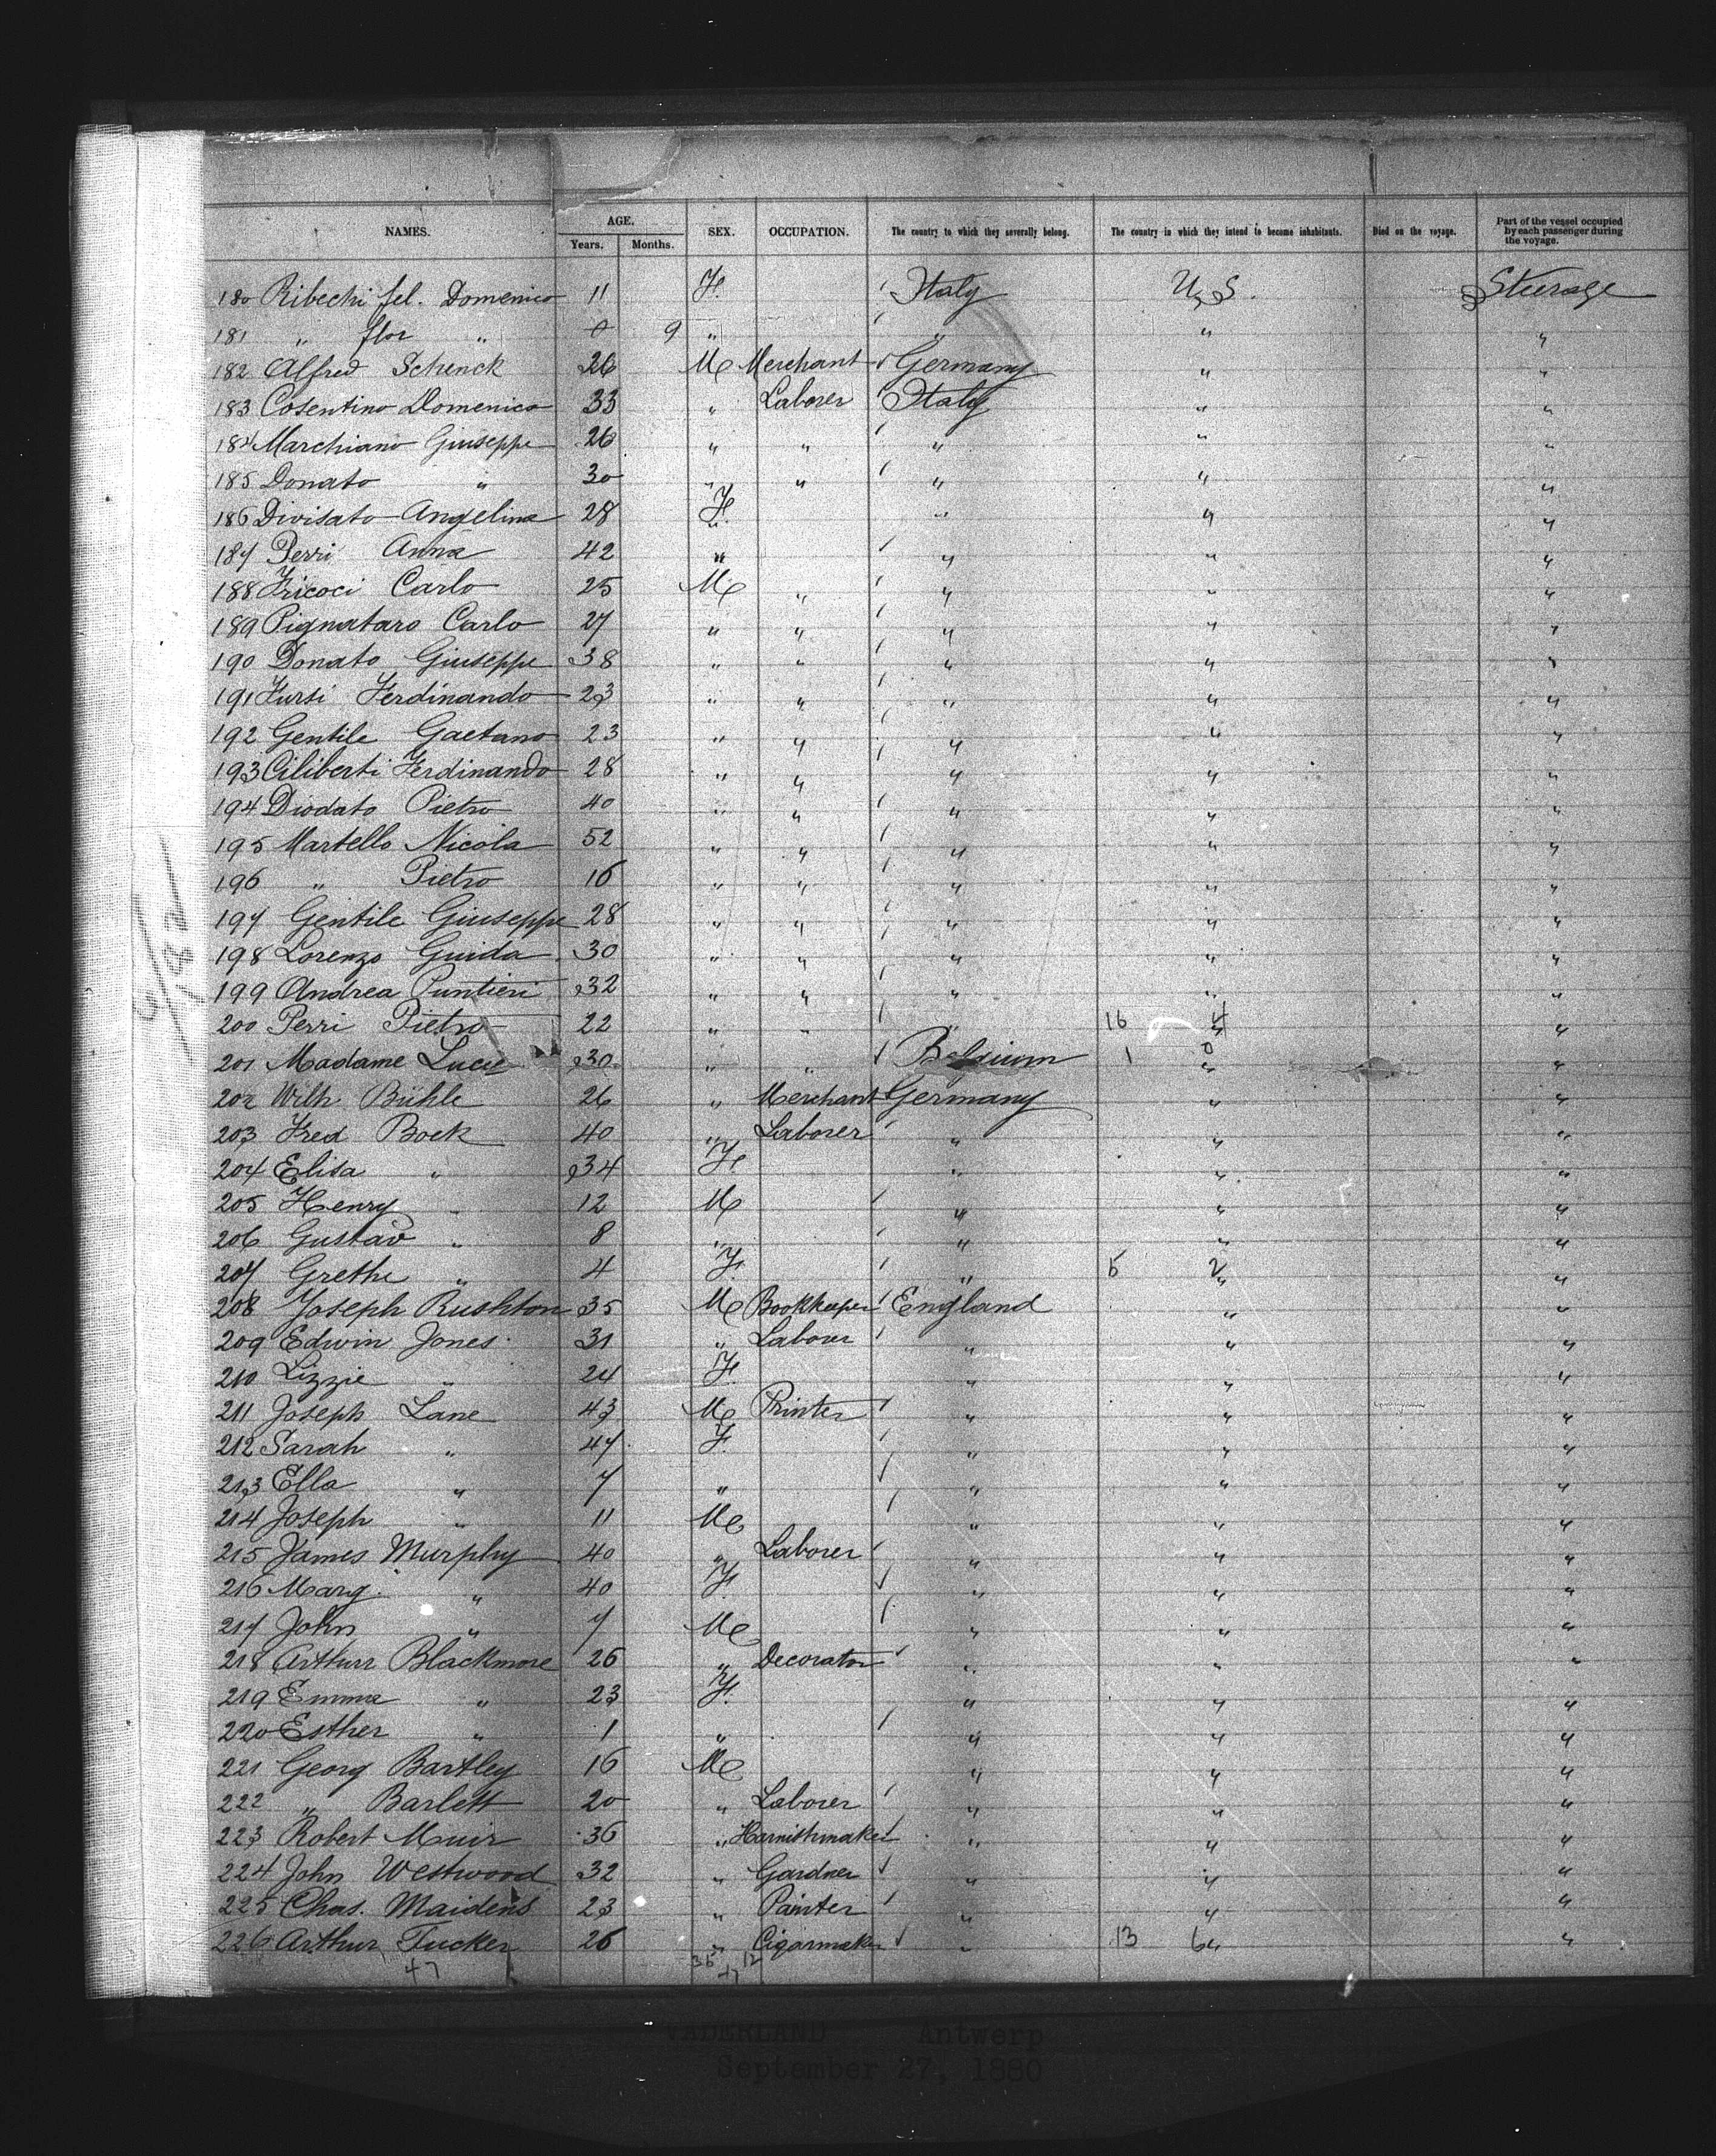 NAMES. AGE. SEX. OCCUPATION. The country to which they severally belong. The country in which they intend to become inhabitants. Died on the voyage. Part of the vessel occupied by each passenger during the voyage.
Years. Months.
180 Ribechi fel. Domenico 11 F. Italy U.S. Steerage
181 " flor " 0 9 " " " "
182 Alfred Schenck 26 M Merchant Germany " "
183 Cosentino Domenico 33 " Laborer Italy " "
184 Marchiano Giuseppe 26 " " " " "
185 Donato " 30 " " " " "
186 Divisato Angelina 28 F. " " "
187 Perri Anna 42 " " " "
188 Fricoci Carlo 25 M " " " "
189 Pignataro Carlo 27 " " " " "
190 Donato Giuseppe 38 " " " " "
191 Fursi Ferdinando 23 " " " " "
192 Gentile Gaetano 23 " " " " "
193 Ciliberti Ferdinando 28 " " " " "
194 Diodato Pietro 40 " " " " "
195 Martello Nicola 52 " " " " "
196 " Pietro 16 " " " " "
197 Gentile Giuseppe 28 " " " " "
198 Lorenzo Guida 30 " " " " "
199 Andrea Puntieri 32 " " " " "
200 Perri Pietro 22 " " " 16 4 "
201 Madame Lucie 30 " " Belgium 1 0 " "
202 Wilh Bühle 26 " Merchant Germany " "
203 Fred Bock 40 " Laborer " " "
204 Elisa " 34 F " " "
205 Henry " 12 M " " "
206 Gustav " 8 " " " "
207 Grethe " 4 F. " 5 2 " "
208 Joseph Rushton 35 M Bookkeeper England " "
209 Edwin Jones 31 " Laborer " " "
210 Lizzie " 24 F. " " "
211 Joseph Lane 43 M Printer " " "
212 Sarah " 47 F. " " "
213 Ella " 7 " " " "
214 Joseph " 11 M " " "
215 James Murphy 40 " Laborer " " "
216 Marg. " 40 F. " " "
217 John " 7 M " " "
218 Arthur Blackmore 26 " Decorator " " "
219 Emma " 23 F. " " "
220 Esther " 1 " " " "
221 Georg Bartley 16 M " " "
222 " Barlett 20 " Laborer " " "
223 Robert Muir 36 " Harnishmaker " " "
224 John Westwood 32 " Gardner " " "
225 Chas. Maidens 23 " Painter " " "
226 Arthur Tucker 26 " Cigarmaker " 13 6 " "
47 35 12
47
VADERLAND Antwerp
September 27, 1880